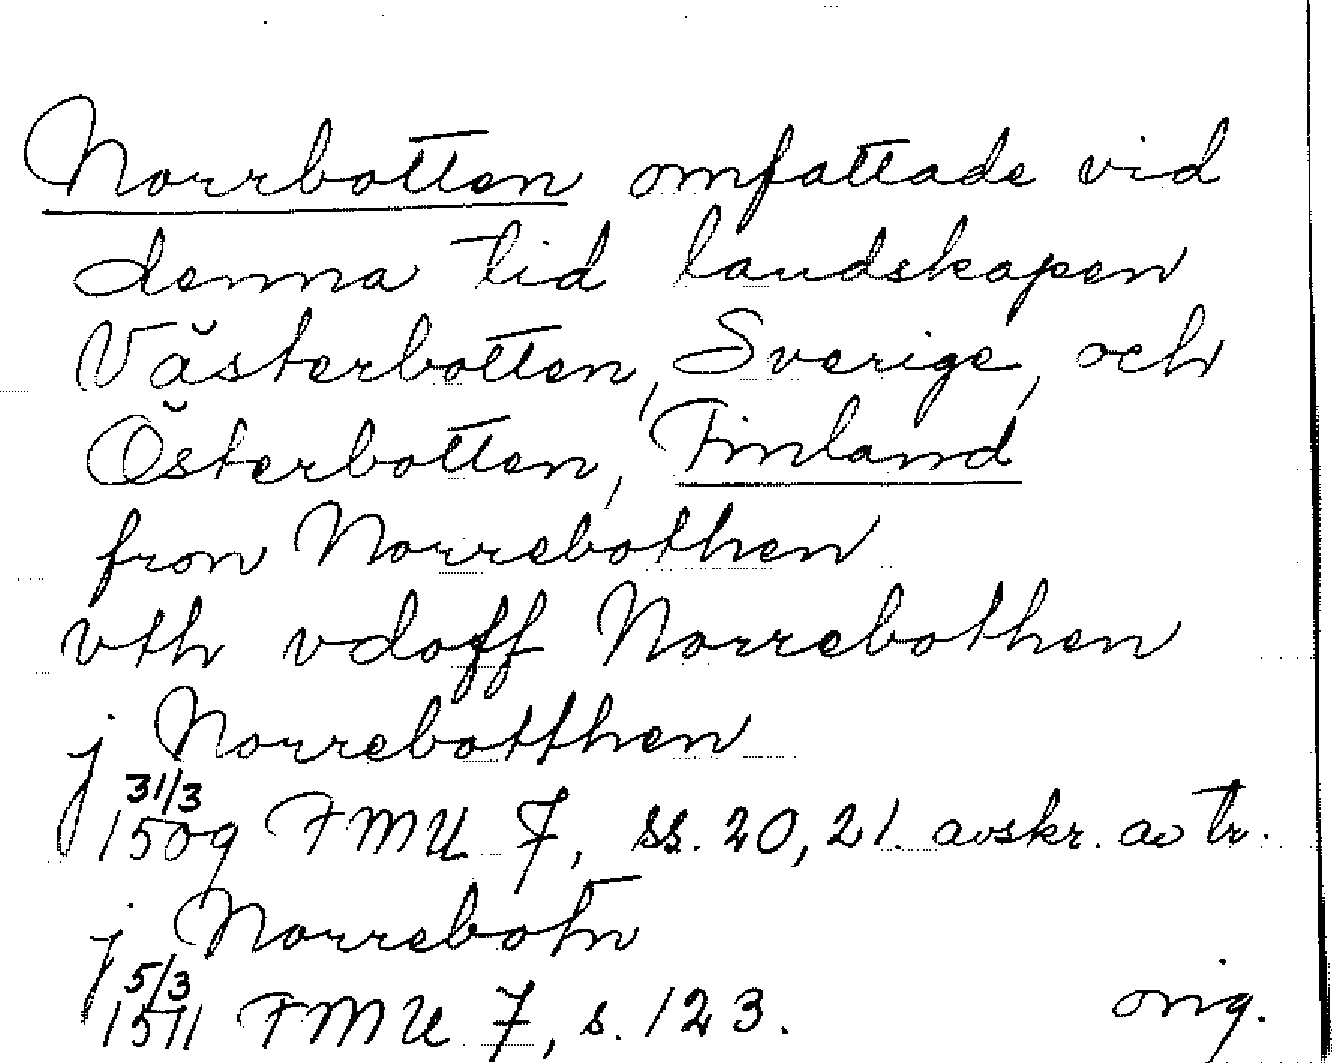 Norrbotten omfattade vid
denna tid landskapen
Västerbotten, Sverige, och
Österbotten, Finland
fron Norrebothen
vth vdoff Norrebothen
j Norrebotthen
31/3
1509 FMU 7, ss. 20, 21. avskr. av tr.
j Norrebotn
5/3
1511 FMU 7, s. 123. orig.